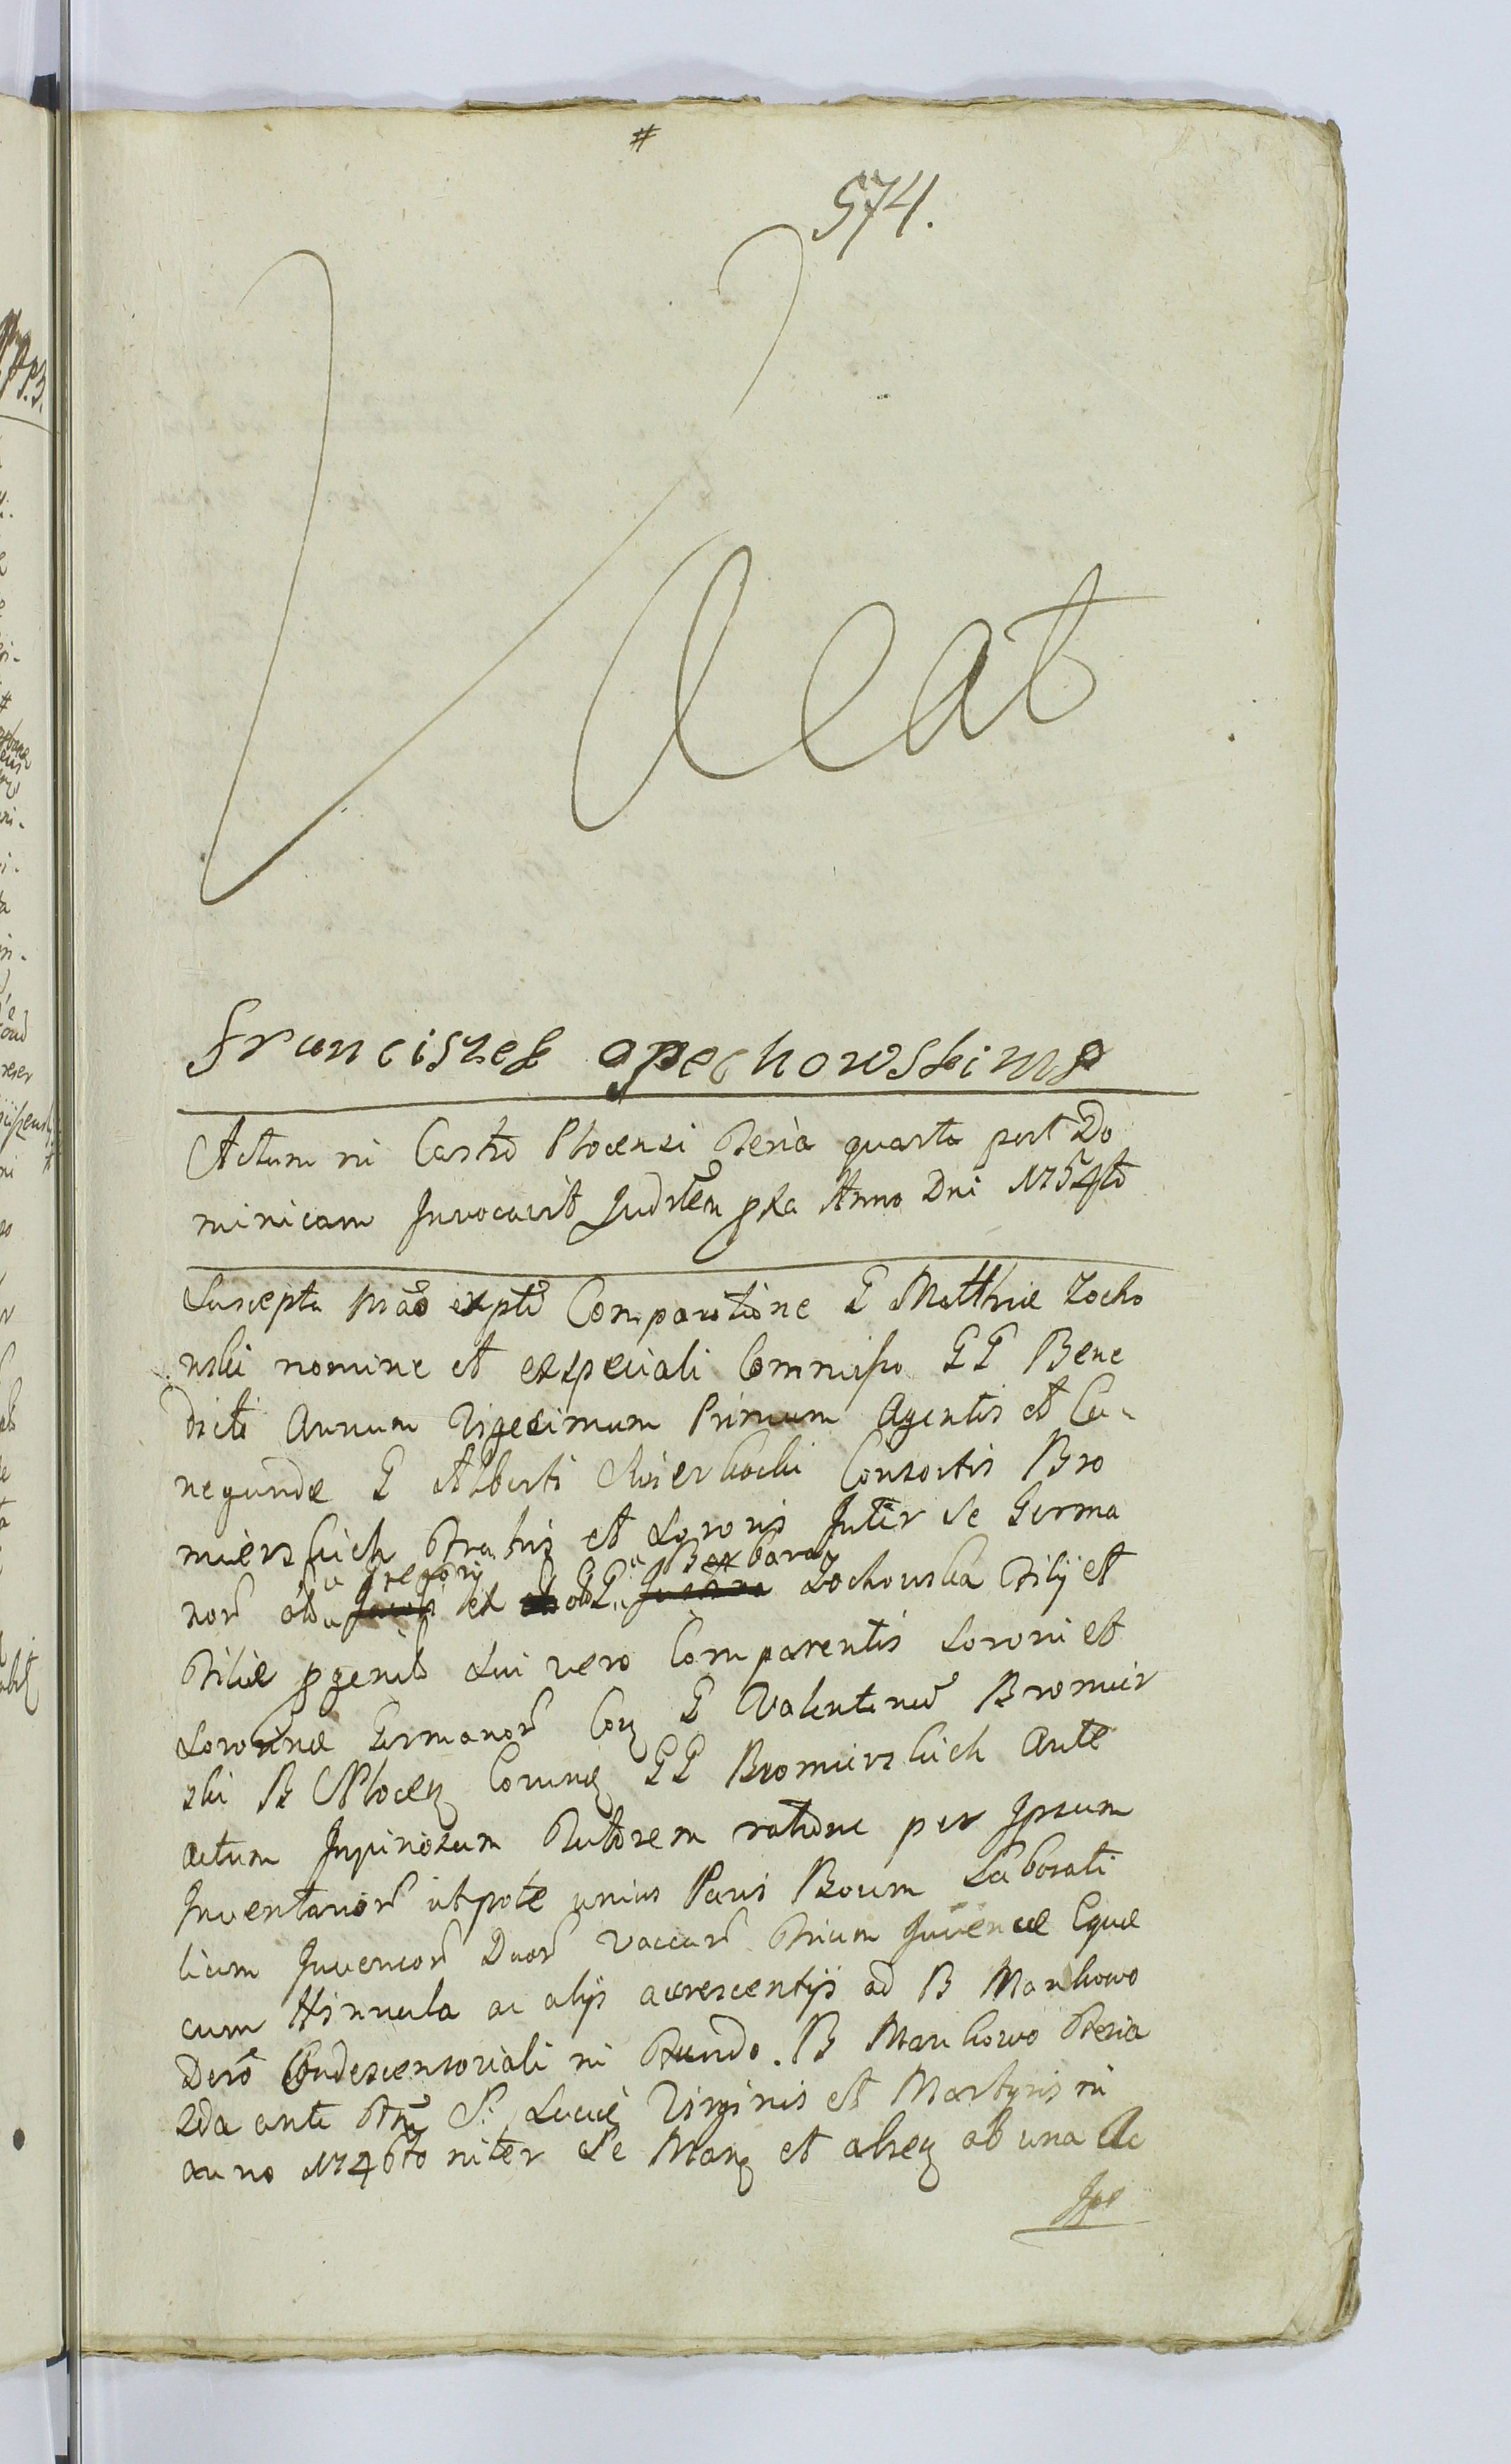 #
574.
Vacat
Franciszek opechowski mp
Actum in Castro Plocensi Feria quarta post Do
minicam Invocavit Judrem pxa Anno Dni 1754to
Suscepta Comparitione G Matthiæ Zocho
wski nomine et ex speciali Commisso GG Bene
dicti Annum Vigesimum Primum Agentis et Cu-
negundæ G Alberti Swierkocki Consortis Bro
mierskich Fratris et Sororis Inter se Germa
nor olim Gregorij et olim G Barbara Zochowska Filij et
Filiæ pgenit Sui vero Comparentis Sororini et
Sororinæ Germanor Cor G Valentinum Bromier
ski B Plocen Eorundem GG Bromierskich Ante
actum Inpinosum Tutorem ratione per Ipsum
Inventarior utpote unius Paris Boum Laborati
lium Juvencor Duor Vaccar Trium Juvencæ Equæ
cum Hinnula ac alijs acrescentijs ad B Mankowo
Decro Condescensoriali in Fundo B Mankowo Feria
2da ante Ftum S: Luciæ Virginis et Martyris in
anno 1746to inter Se Man et alsen ab una Ac
Ipe